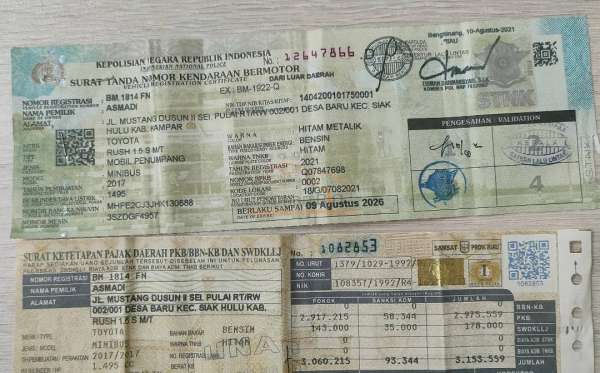 Bangkinang, 10-Agustus-2021
KEPOLISIAN NEGARA REPUBLIK INDONESIA
INDONESIAN NATIONAL POLICE
No. : 12647866
SURAT TANDA NOMOR KENDARAAN BERMOTOR
VEHICLE REGISTRATION CERTIFICATE
DARI LUAR DAERAH
NOMOR REGISTRASI : BM 1814 FN EX : BM-1922-Q
NAMA PEMILIK : ASMADI 1404200101750001
ALAMAT : JL MUSTANG DUSUN II SEI. PULAI RT/RW 002/001 DESA BARU KEC. SIAK
HULU KAB. KAMPAR
TOYOTA WARNA HITAM METALIK
RUSH 1.5 S M/T BENSIN
MOBIL PENUMPANG WARNA TNKB HITAM
MINIBUS 2021
2017 NOMOR BPKB Q07847698
1495 0002
MHFE2CJ3JHK130688 KODE LOKASI 18/G/07082021
3SZDGF4957 BERLAKU SAMPAI 09 Agustus 2026
STNK
PENGESAHAN / VALIDATION
4
SURAT KETETAPAN PAJAK DAERAH PKB/BBN-KB DAN SWDKLLJ
No. 1082853
SAMSAT
NOMOR REGISTRASI BM 1814 FN
NAMA PEMILIK ASMADI
ALAMAT JL. MUSTANG DUSUN II SEI. PULAI RT/RW
002/001 DESA BARU KEC. SIAK HULU KAB.
RUSH 1.5 S M/T
TOYOTA BENSIN
MINIBUS HITAM
2017/2017
1.495 CC
NO. URUT 1379/1029-1992/
NO. KOHIR
NIK 108357/19927R4
1082853
POKOK SANKSI ADM JUMLAH
0 0 0 BBN-KB
2.917.215 58.344 2.975.559 PKB
143.000 35.000 178.000 SWDKLLJ
3.060.215 93.344 3.153.559
JUMLAH